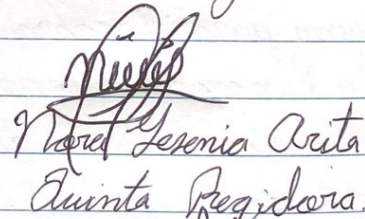 Yesenia Arita
Quinta Regidora.